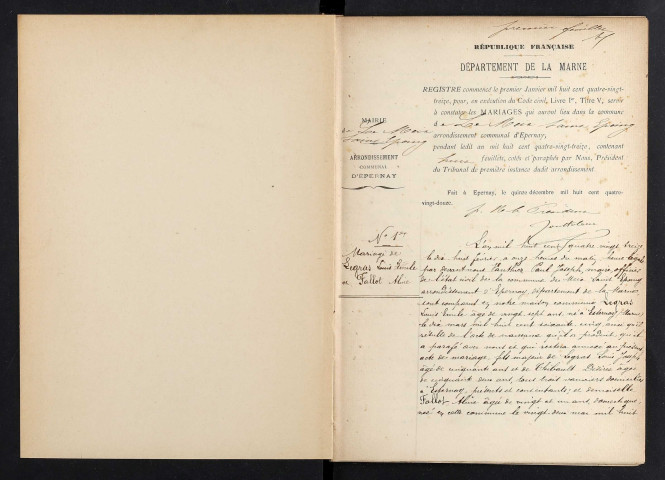 premier feuillet
RÉPUBLIQUE FRANÇAISE
DÉPARTEMENT DE LA MARNE
REGISTRE commencé le premier Janvier mil huit cent quatre-vingt-
treize, pour, en exécution du Code civil, Livre Ier, Titre V, servir
à constater les MARIAGES qui auront lieu dans la commune
d
arrondissement communal d'Epernay,
pendant ledit an mil huit cent quatre-vingt-treize, contenant
feuillets, cotés et paraphés par Nous, Président
du Tribunal de première instance dudit arrondissement.
Fait à Epernay, le quinze décembre mil huit cent quatre-
vingt-douze.
MAIRIE
ARRONDISSEMENT
COMMUNAL
D'ÉPERNAY
No 1er
Mariage de
Legras Louis Emile
Fallot Aline
L'an mil huit cent quatre vingt treize
le dix huit février à onze heures du matin
par devant nous Gauthier Paul Joseph, maire, officier
de l'état civil de la commune de
arrondissement d'Epernay, département de la Marne
sont comparus en notre maison commune Legras
Louis Emile âgé de vingt sept ans, né à Esternay (Marne)
le dix mars mil huit cent soixante cinq ainsi qu'il
résulte de l'acte de naissance qu'il a produit, qu'il
a parafé avec nous et qui restera annexé au présent
acte de mariage, fils majeur de Legras Louis Joseph
âgé de cinquante ans et de Thibault Désirée âgée
de cinquante deux ans, tous trois vanniers domiciliés
à Esternay, présents et consentants; et demoiselle
Fallot Aline âgée de vingt et un ans, domestique,
née en cette commune le vingt deux mai mil huit